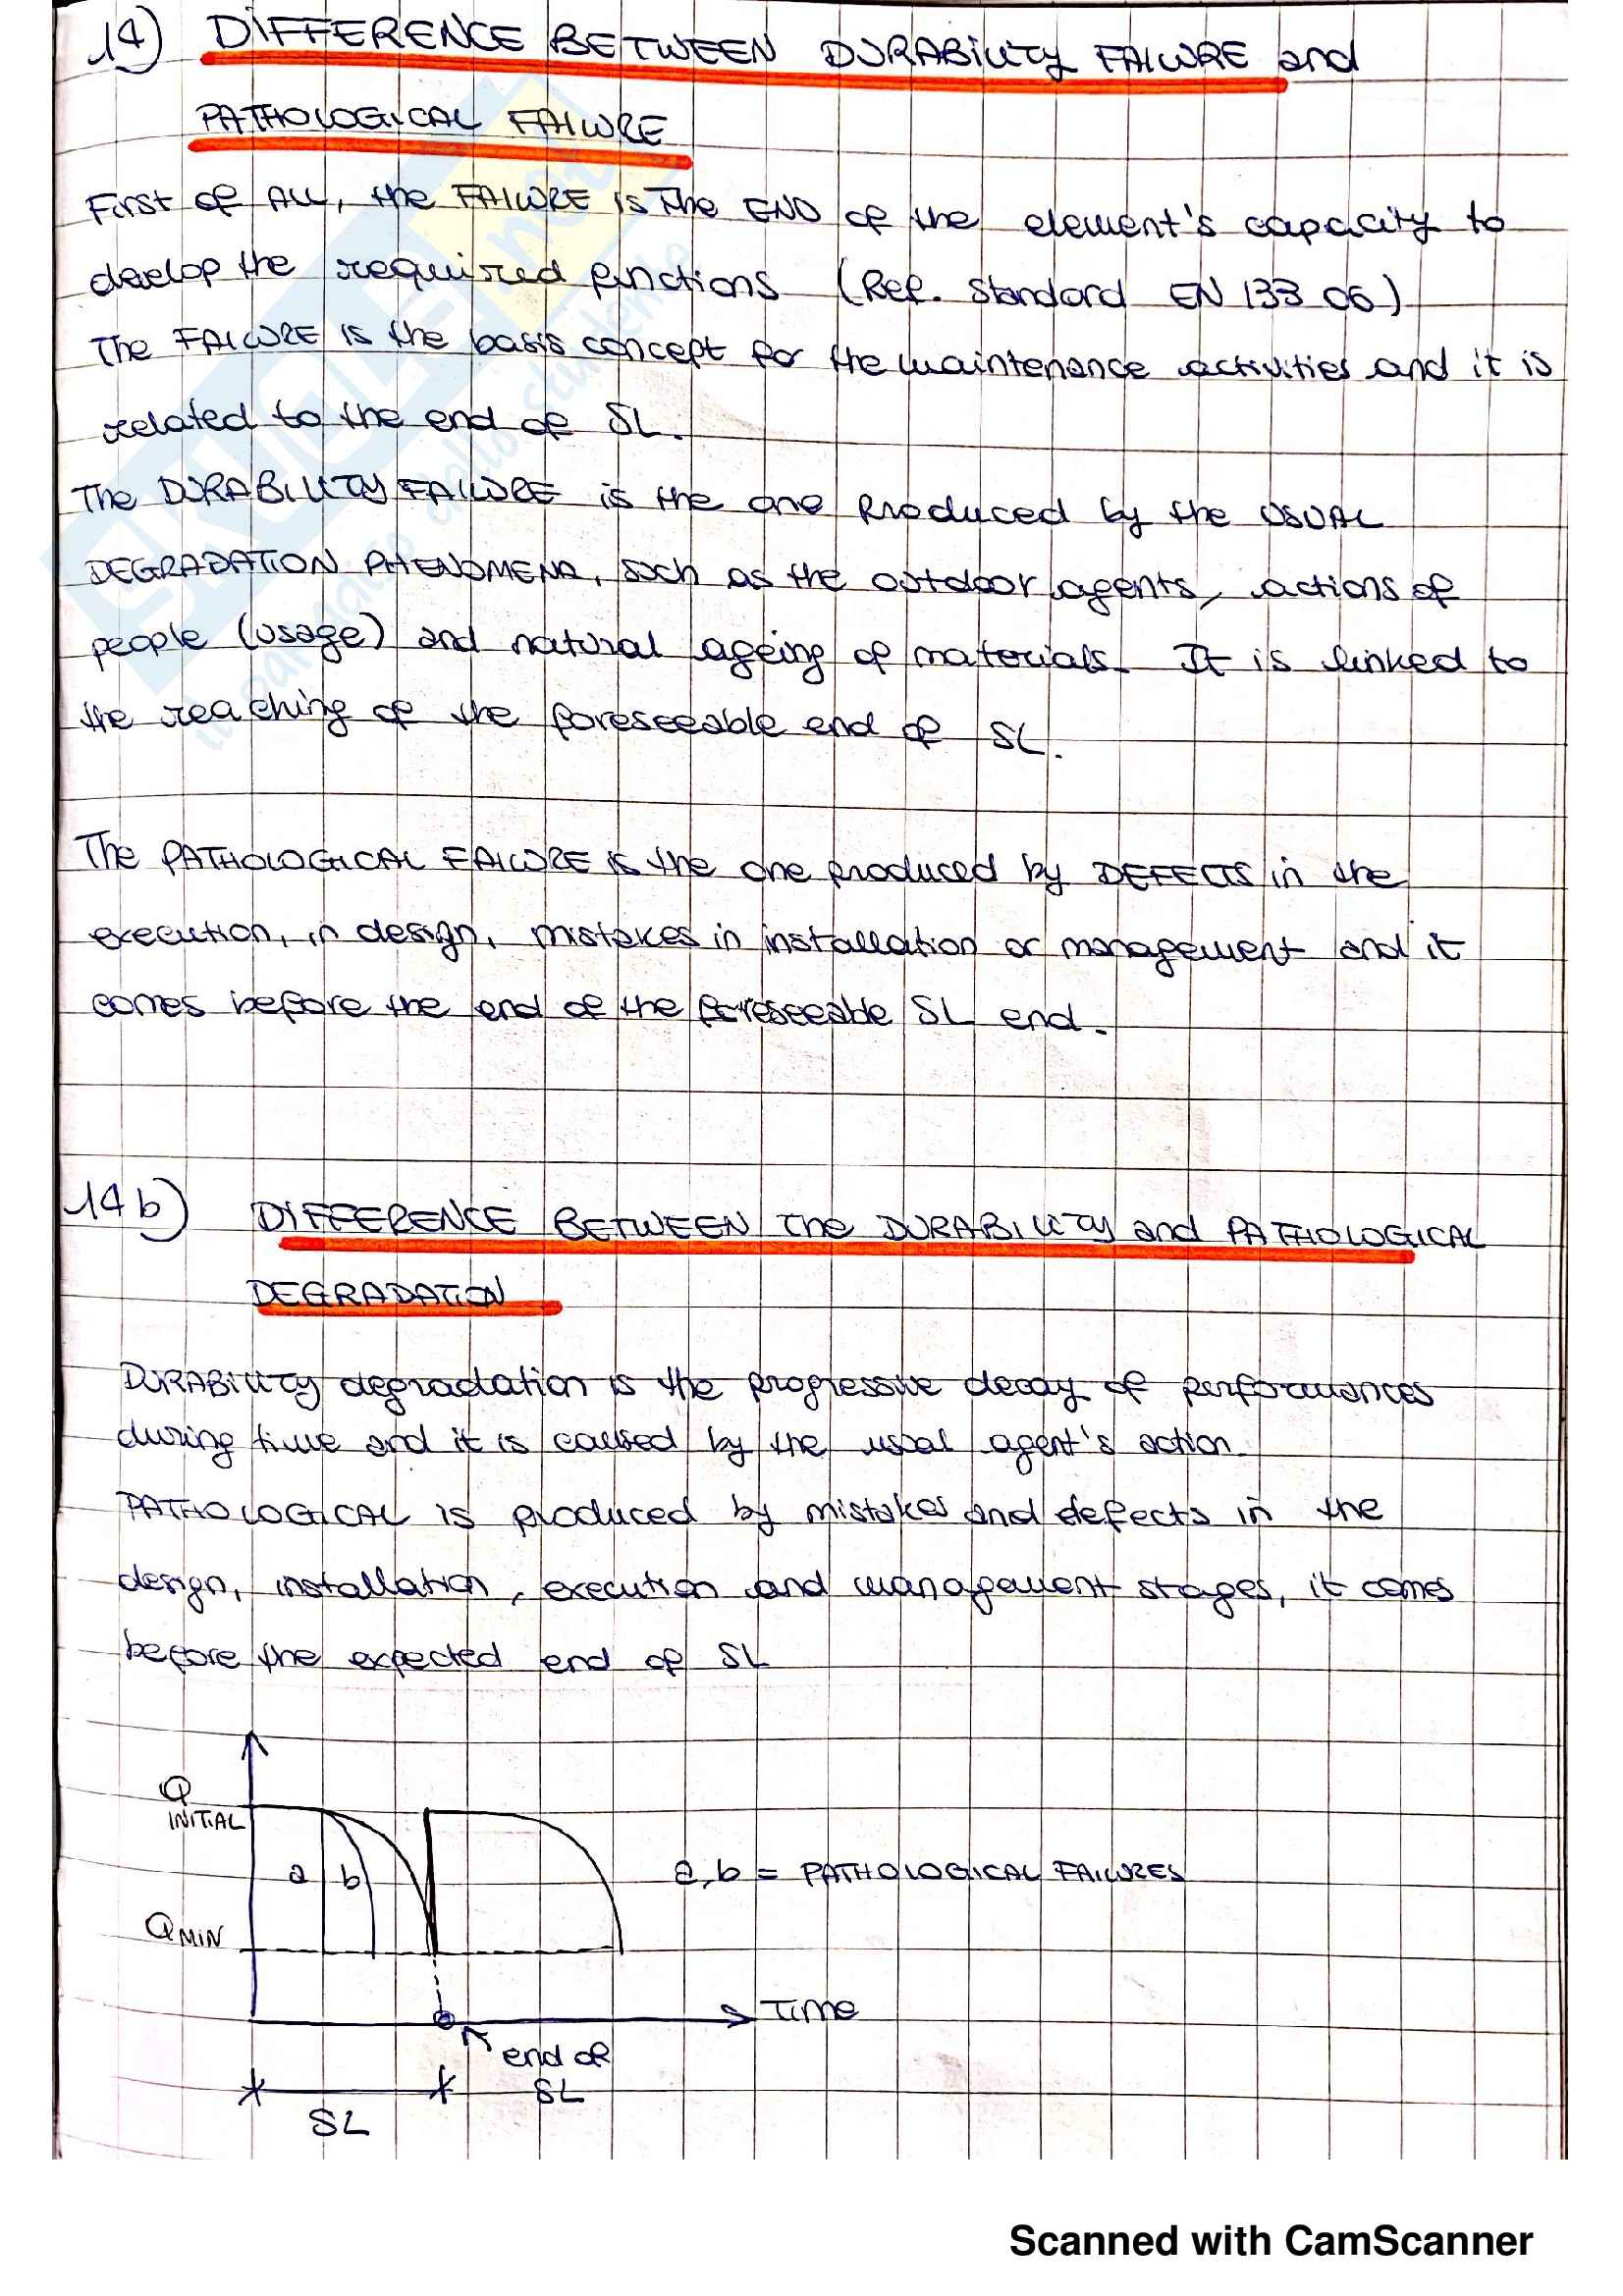 14) DIFFERENCE BETWEEN DURABILITY FAILURE and
PATHOLOGICAL FAILURE
First of ALL, the FAILURE is The END of the element's capacity to
develop the required functions (Ref. Standard EN 13306)
The FAILURE is the basis concept for the maintenance activities and it is
related to the end of SL.
The DURABILITY FAILURE is the one produced by the USUAL
DEGRADATION PHENOMENA, such as the outdoor agents, actions of
people (usage) and natural ageing of materials. It is linked to
the reaching of the foreseeable end of SL.
The PATHOLOGICAL FAILURE is the one produced by DEFECTS in the
execution, in design, mistakes in installation or management and it
comes before the end of the foreseeable SL end.
14b) DIFFERENCE BETWEEN The DURABILITY and PATHOLOGICAL
DEGRADATION
DURABILITY degradation is the progressive decay of performances
during time and it is caused by the usual agent's action.
PATHOLOGICAL is produced by mistakes and defects in the
design, installation, execution and management stages, it comes
before the expected end of SL
Q
INITIAL
a b
a,b = PATHOLOGICAL FAILURES
QMIN
Time
end of
SL
SL
SKUOLA.net
il paradiso dello studente
Scanned with CamScanner